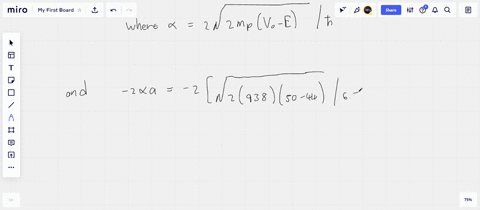 miro My First Board Share
where α = 2√2mp(V₀-E) / ħ
and -2αa = -2[√2(938)(50-46) / 6
75%